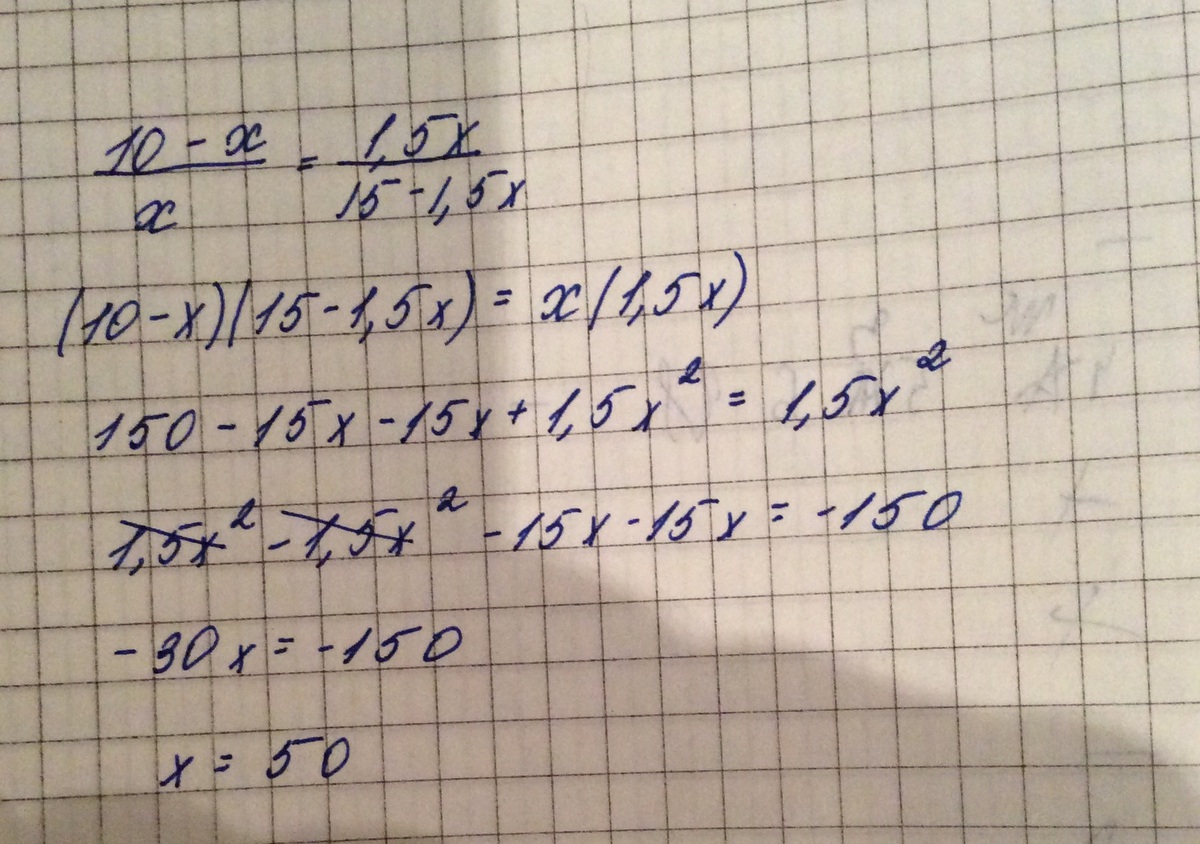 (10 - x)/x = 1,5x/(15 - 1,5x)
(10 - x)(15 - 1,5x) = x(1,5x)
150 - 15x - 15x + 1,5x² = 1,5x²
1,5x² - 1,5x² - 15x - 15x = -150
-30x = -150
x = 50